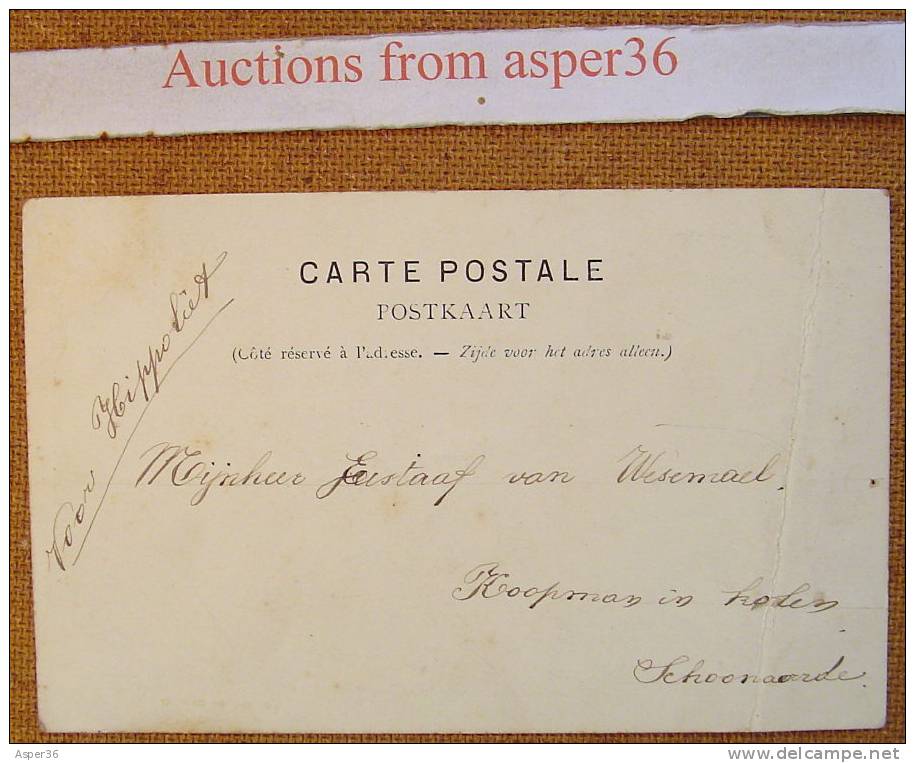 Auctions from asper36
CARTE POSTALE
POSTKAART
(Côté réservé à l'adresse. — Zijde voor het adres alleen.)
Voor Hippoliet
Mijnheer Gustaaf van Wesemael.
Koopman in kolen
Schoonaarde.
Asper36
http://www.delcampe.net